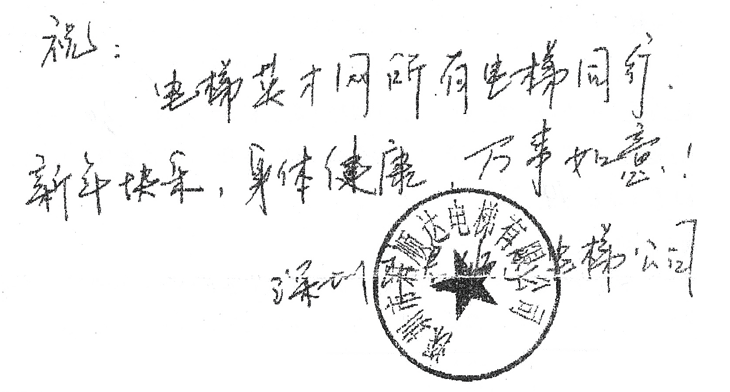 祝：
电梯英才网所有电梯同行.
新年快乐，身体健康，万事如意！
深圳 电梯公司
深圳市 顺达电梯有限公司